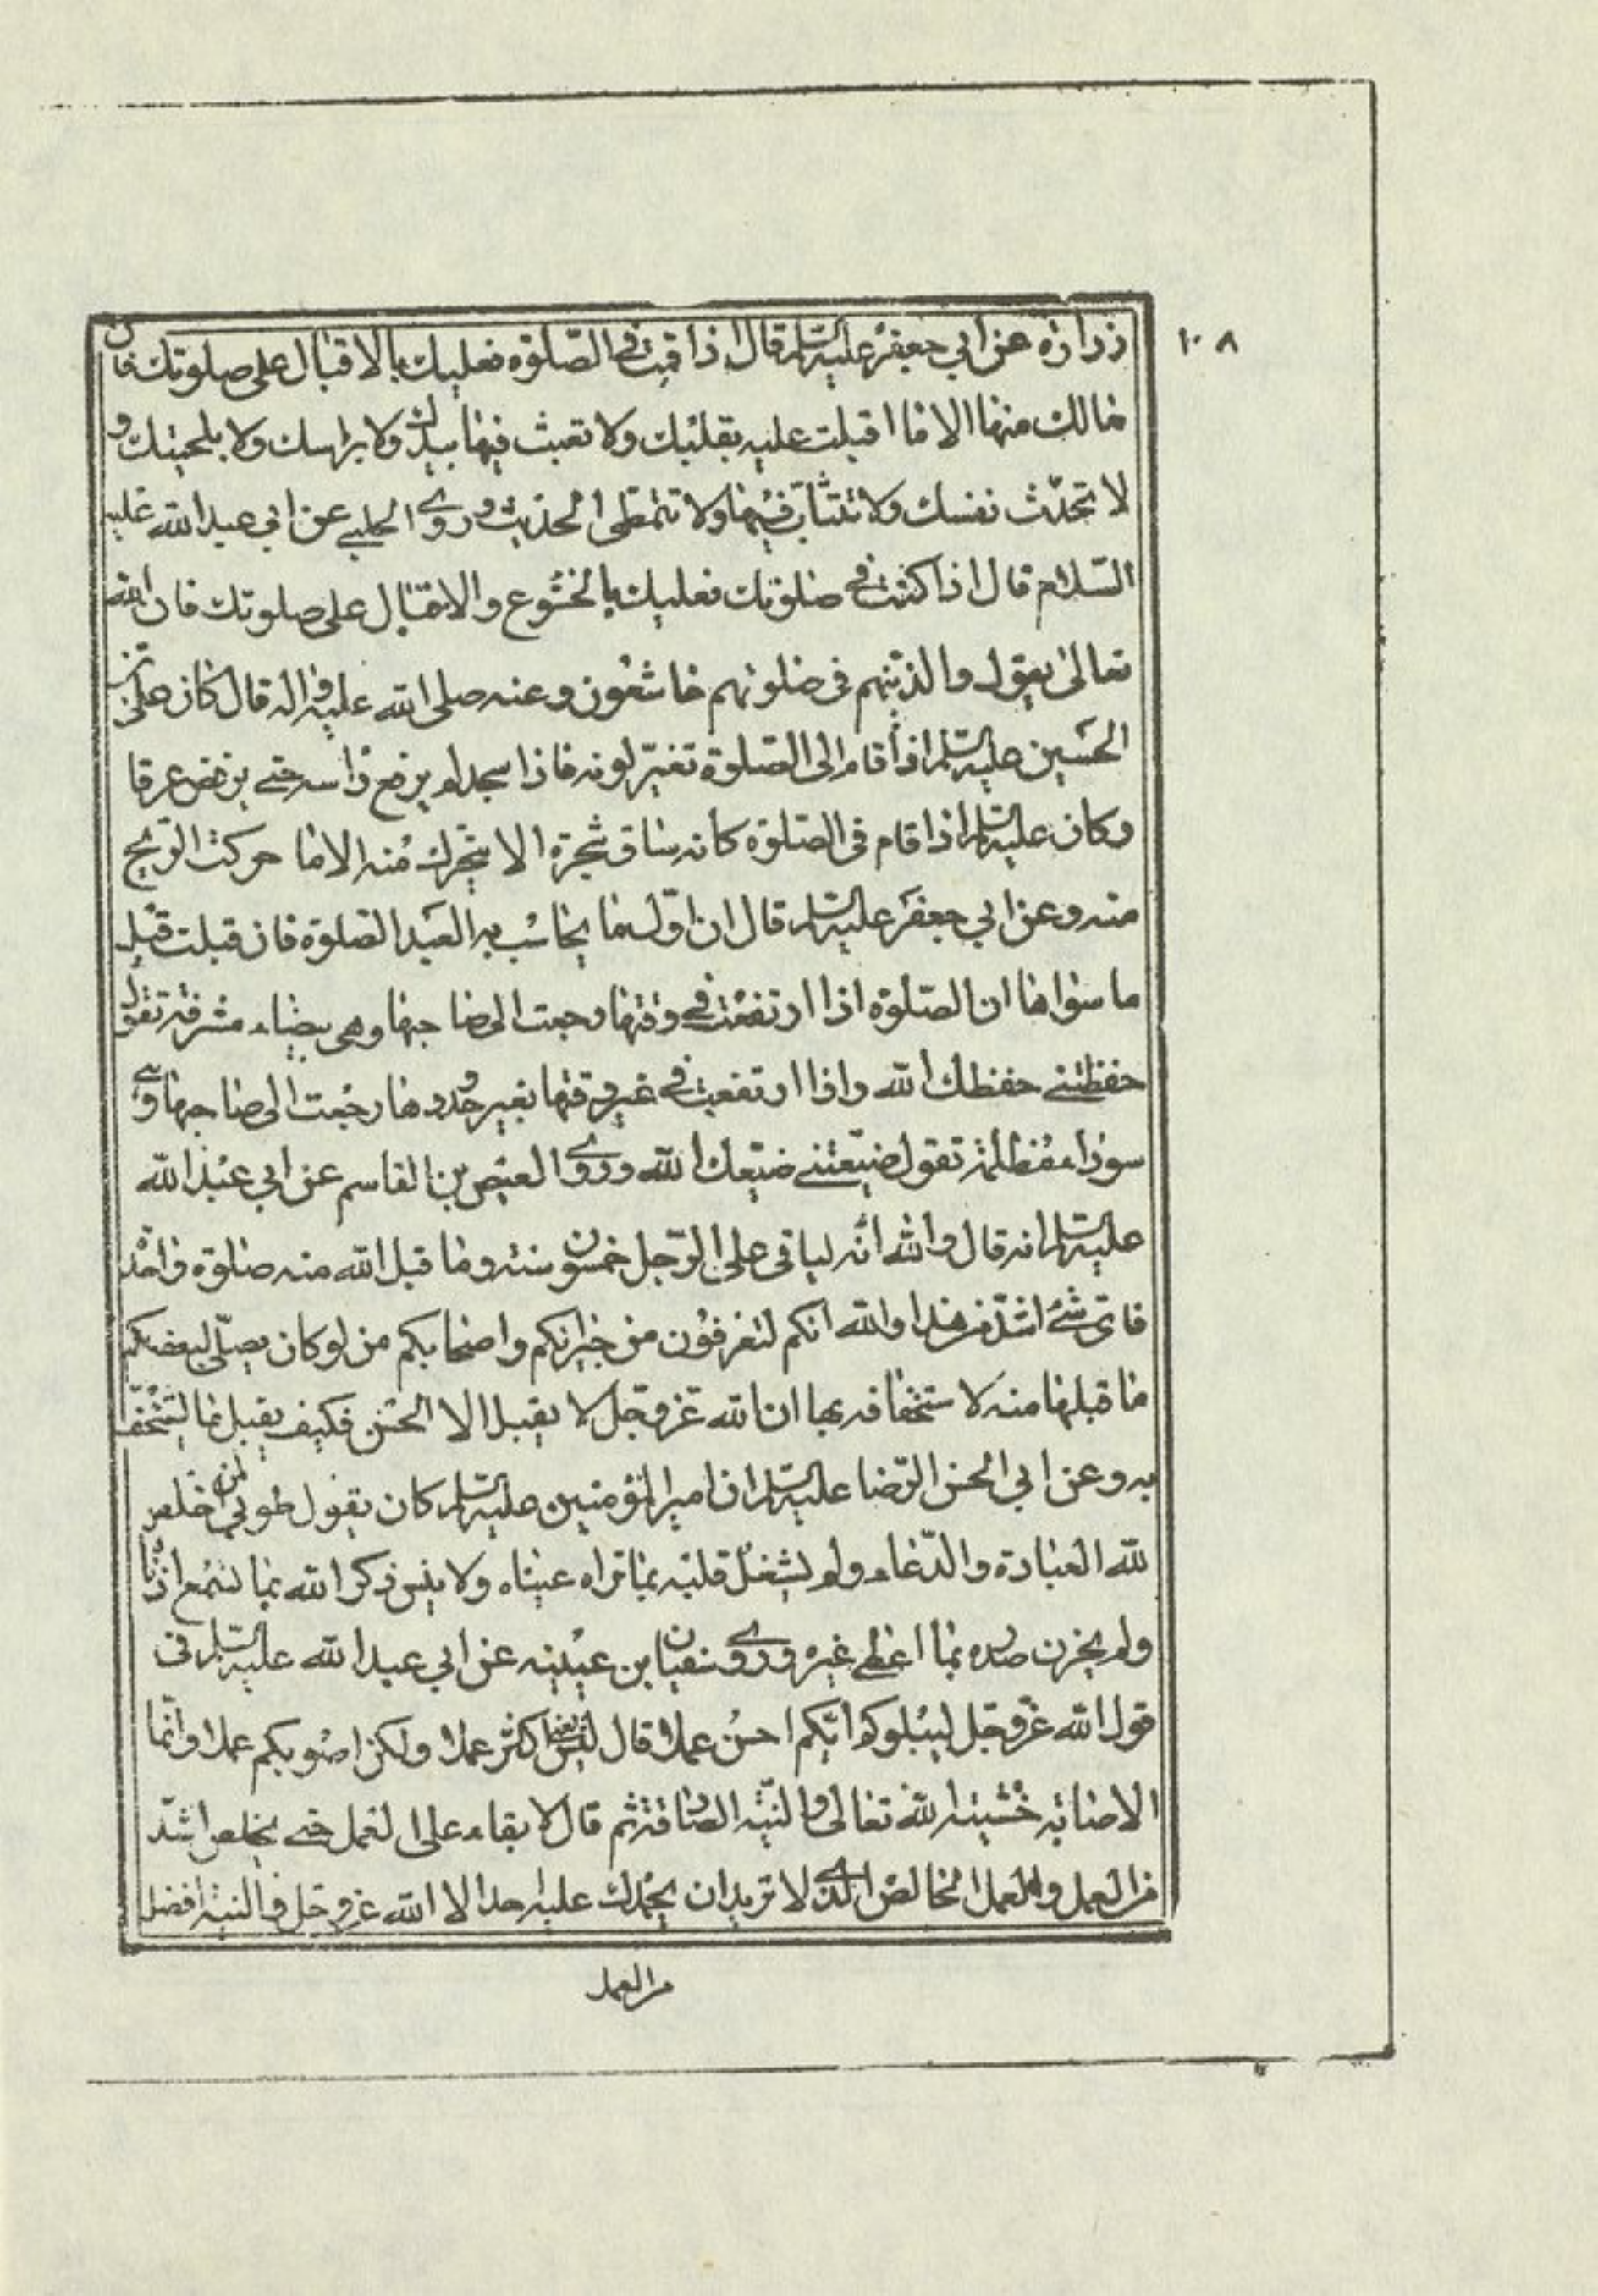 ١٠٨
زرارة عن ابي جعفر عليه السلام قال اذا قمت في الصلوة فعليك بالاقبال على صلوتك فان
مالك منها الا ما اقبلت عليه بقلبك ولا تعبث فيها بيدك ولا براسك ولا بلحيتك و
لا تحدّث نفسك ولا تتثاب فيها ولا تتمطى الحديث وروى الحلبي عن ابي عبد الله عليه
السّلام قال اذا كنت في صلوتك فعليك بالخشوع والاقبال على صلوتك فان الله
تعالى يقول والذينهم في صلوتهم خاشعون وعنه صلى الله عليه واله قال كان على بن
الحسين عليه السلم اذا قام الى الصلوة تغيّر لونه فاذا سجد لم يرفع راسه حتى يرفض عرقا
وكان عليه السلم اذا قام في الصلوة كانه ساق شجرة الا يتحرك منه الا ما حركت الريح
منه وعن ابي جعفر عليه السلم قال ان اوّل ما يحاسب به العبد الصلوة فان قبلت قبل
ما سواها ان الصلوة اذا ارتفعت في وقتها رجعت الى صاحبها وهي بيضاء مشرفة تقول
حفظتني حفظك الله واذا ارتفعت في غير وقتها بغير حدودها رجعت الى صاحبها وهى
سوداء مظلمة تقول ضيّعتني ضيّعك الله وروى العيص بن القاسم عن ابي عبد الله
عليه السلم انه قال والله انّه لياتى على الرّجل خمسون سنة وما قبل الله منه صلوة واحدة
فاىّ شئ اشدّ من هذا والله انكم لتعرفون من جيرانكم واصحابكم من لو كان يصلّى لبعضكم
ما قبلها منه لاستخفافه بها ان الله عز وجل لا يقبل الا الحسن فكيف يقبل ما يستخفّ
به وعن ابي الحسن الرّضا عليه السلم ان امير المؤمنين عليه السلم كان يقول طوبى لمن اخلص
لله العبادة والدّعاء ولم يشغل قلبه بما تراه عيناه ولا ينس ذكر الله بما تسمع اذناه
ولم يحزن صدره بما اعطى غيره وروى سفيان بن عيينه عن ابي عبد الله عليه السلم في
قول الله عزّ وجل ليبلوكم ايّكم احسن عملا قال ليس يعنى اكثر عملا ولكن اصوبكم عملا وانّما
الاصابة خشية الله تعالى والنيّة الصادقة ثم قال الابقاء على العمل حتى يخلص اشدّ
من العمل والعمل الخالص الذى لا تريد ان يحمدك عليه احد الا الله عز وجل والنية افضل
من العمل